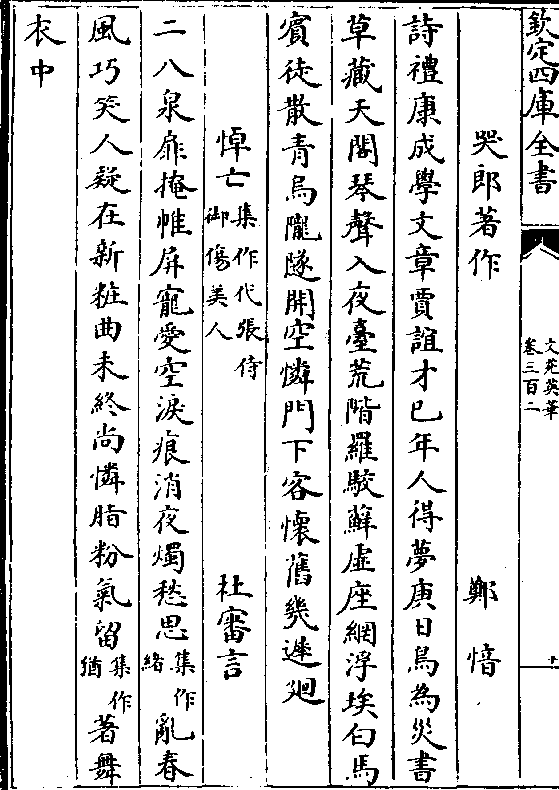 欽定四庫全書
文苑英華
卷三百二
十
哭郎著作 鄭愔
詩禮康成學文章賈誼才巳年人得夢庚日鳥為災書
草藏天閣琴聲入夜臺荒階羅駮蘚虛座網浮埃白馬
賓徒散青烏隴隧開空憐門下客懷舊幾遲廻
悼亡集作代張侍御傷美人 杜審言
二八泉扉掩帷屏寵愛空淚痕消夜燭愁思集作緒亂春
風巧笑人疑在新粧曲未終尚憐脂粉氣留集作猶著舞
衣中